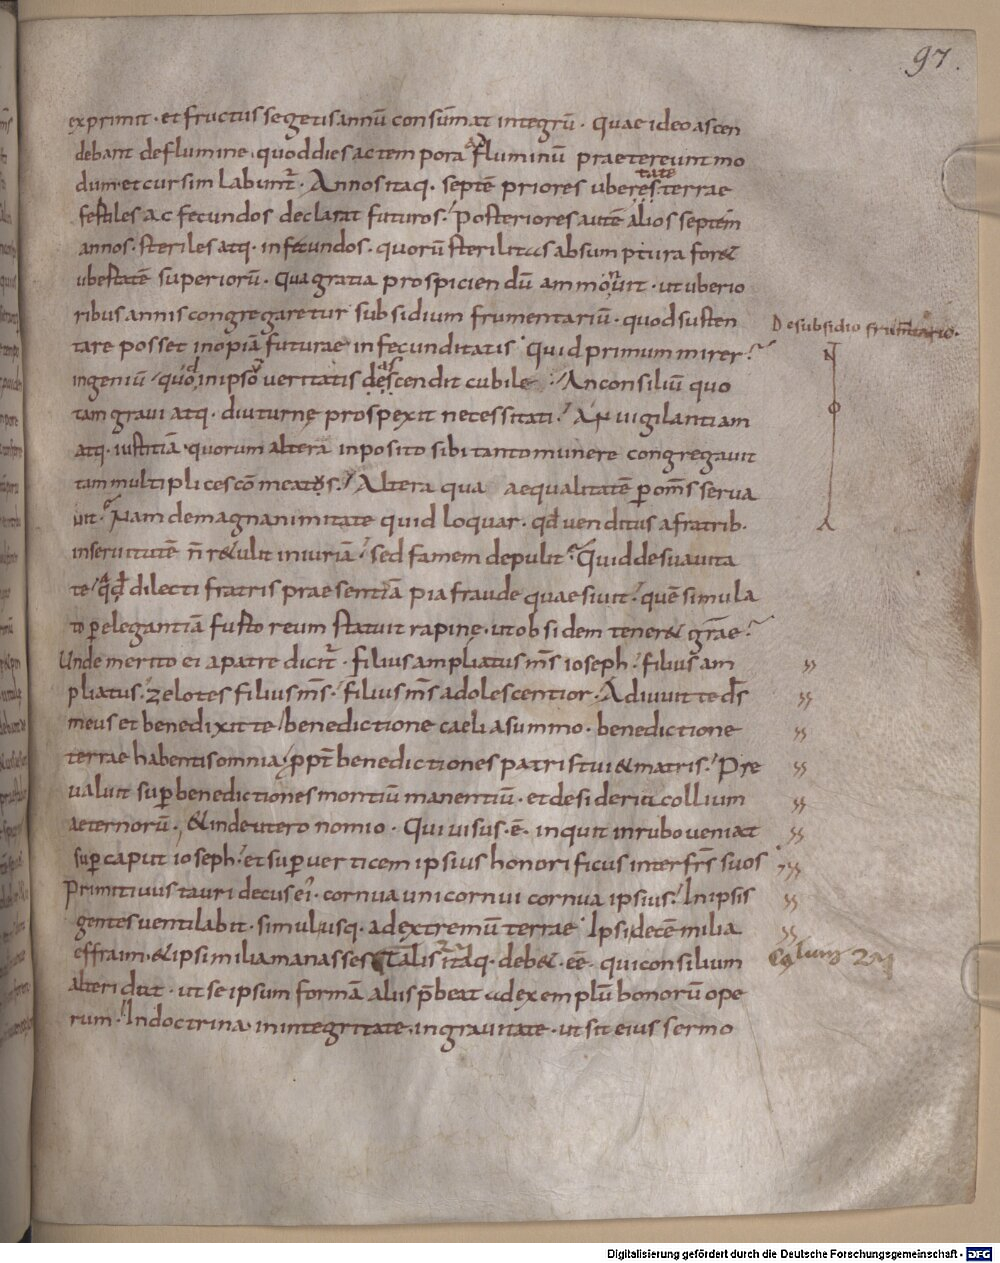 97.
exprimit · et fructus segetis annū consūmat integrū · quae ideo ascen
debant deflumine · quoddies ac tempora fluminū praetereunt mo
dum et cursim labunt̄ · Annos itaq · septē priores uberes terrae
tate
fertiles ac fecundos declarat futuros · Posteriores autē alios septem
annos · steriles atq · infecundos · quorū sterilitas absumptura for&
ubertatē superiorū · Qua gratia prospiciendū ammonuit · ut uberio
ribus annis congregaretur subsidium frumentariū · quod susten
De subsidio frum̄tario ·
tare posset inopiā futurae infecunditatis · Quid primum mirer ?
N
ingeniū / quo in ipso veritatis descendit cubile · / An consiliū quo
tam graui atq · diuturnę prospexit necessitati ? An uigilantiam
O
atq · iustitiā · quorum altera inposito sibi tanto munere congregauit
tam multiplices cōmeatus · / Altera qua aequalitatē p om̄s serua
uit · Nam de magnanimitate quid loquar · qđ venditus a fratrib ·
A
in seruitutē n̄ r&ulit iniuriā · sed famem depulit · Quid de suauita
te / qđ dilecti fratris praesentiā pia fraude quaesiuit · quē simula
to p elegantiā furto reum statuit rapinę · ut obsidem tener& grae ·
Unde merito ei a patre dicit̄ · filius ampliatus m̄s ioseph · filius am
pliatus · zelotes filius m̄s · filius m̄s adolescentior · Adiuuit te d̄s
meus et benedixit te / benedictione caeli a summo · benedictione
terrae habentis omnia / ppt̄ benedictiones patris tui & matris · Pre
ualuit sup benedictiones montiū manentiū · et desideria collium
aeternorū · & in deuteronomio · Qui uisus · ē · inquit in rubo ueniat
sup caput ioseph · et super verticem ipsius honorificus inter fr̄s suos
Primitiuus tauri decus ei · cornua unicornui cornua ipsius · In ipsis
gentes ventilabit · simul usq · ad extremū terrae · Ipsi decē milia
effraim · & ipsi milia manasses Talis itaq · deb& · eē · qui consilium
alteri dat · ut se ipsum formā aliis p̄beat ad exemplū bonorū ope
rum · In doctrina in integritate · in grauitate · ut sit eius sermo
Digitalisierung gefördert durch die Deutsche Forschungsgemeinschaft - DFG